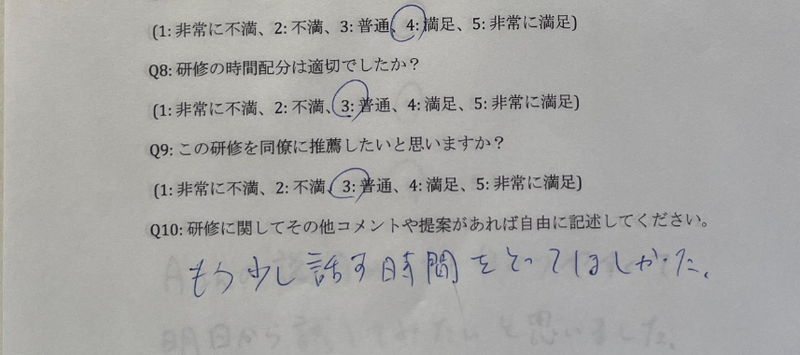 (1: 非常に不満、2: 不満、3: 普通、4: 満足、5: 非常に満足)
Q8: 研修の時間配分は適切でしたか?
(1: 非常に不満、2: 不満、3: 普通、4: 満足、5: 非常に満足)
Q9: この研修を同僚に推薦したいと思いますか?
(1: 非常に不満、2: 不満、3: 普通、4: 満足、5: 非常に満足)
Q10: 研修に関してその他コメントや提案があれば自由に記述してください。
もう少し話す時間をとってほしかった。
明日から試してみたいと思いました。